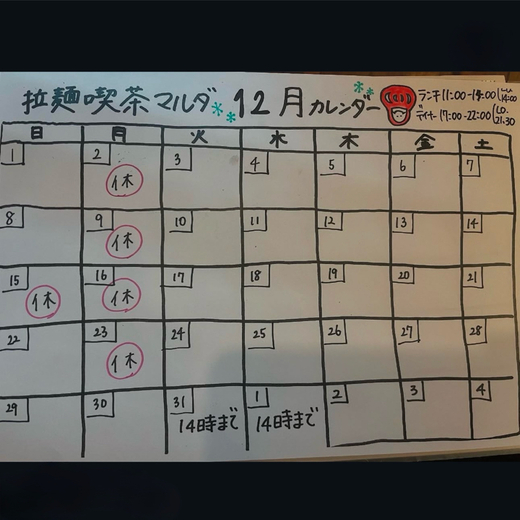 拉麺喫茶マルダ 12月カレンダー
ランチ11:00-15:00
ディナー17:00-22:00 LO.21:30
日 月 火 水 木 金 土
1 2 3 4 5 6 7
休
8 9 10 11 12 13 14
休
15 16 17 18 19 20 21
休 休
22 23 24 25 26 27 28
休
29 30 31 1 2 3 4
14時まで 14時まで